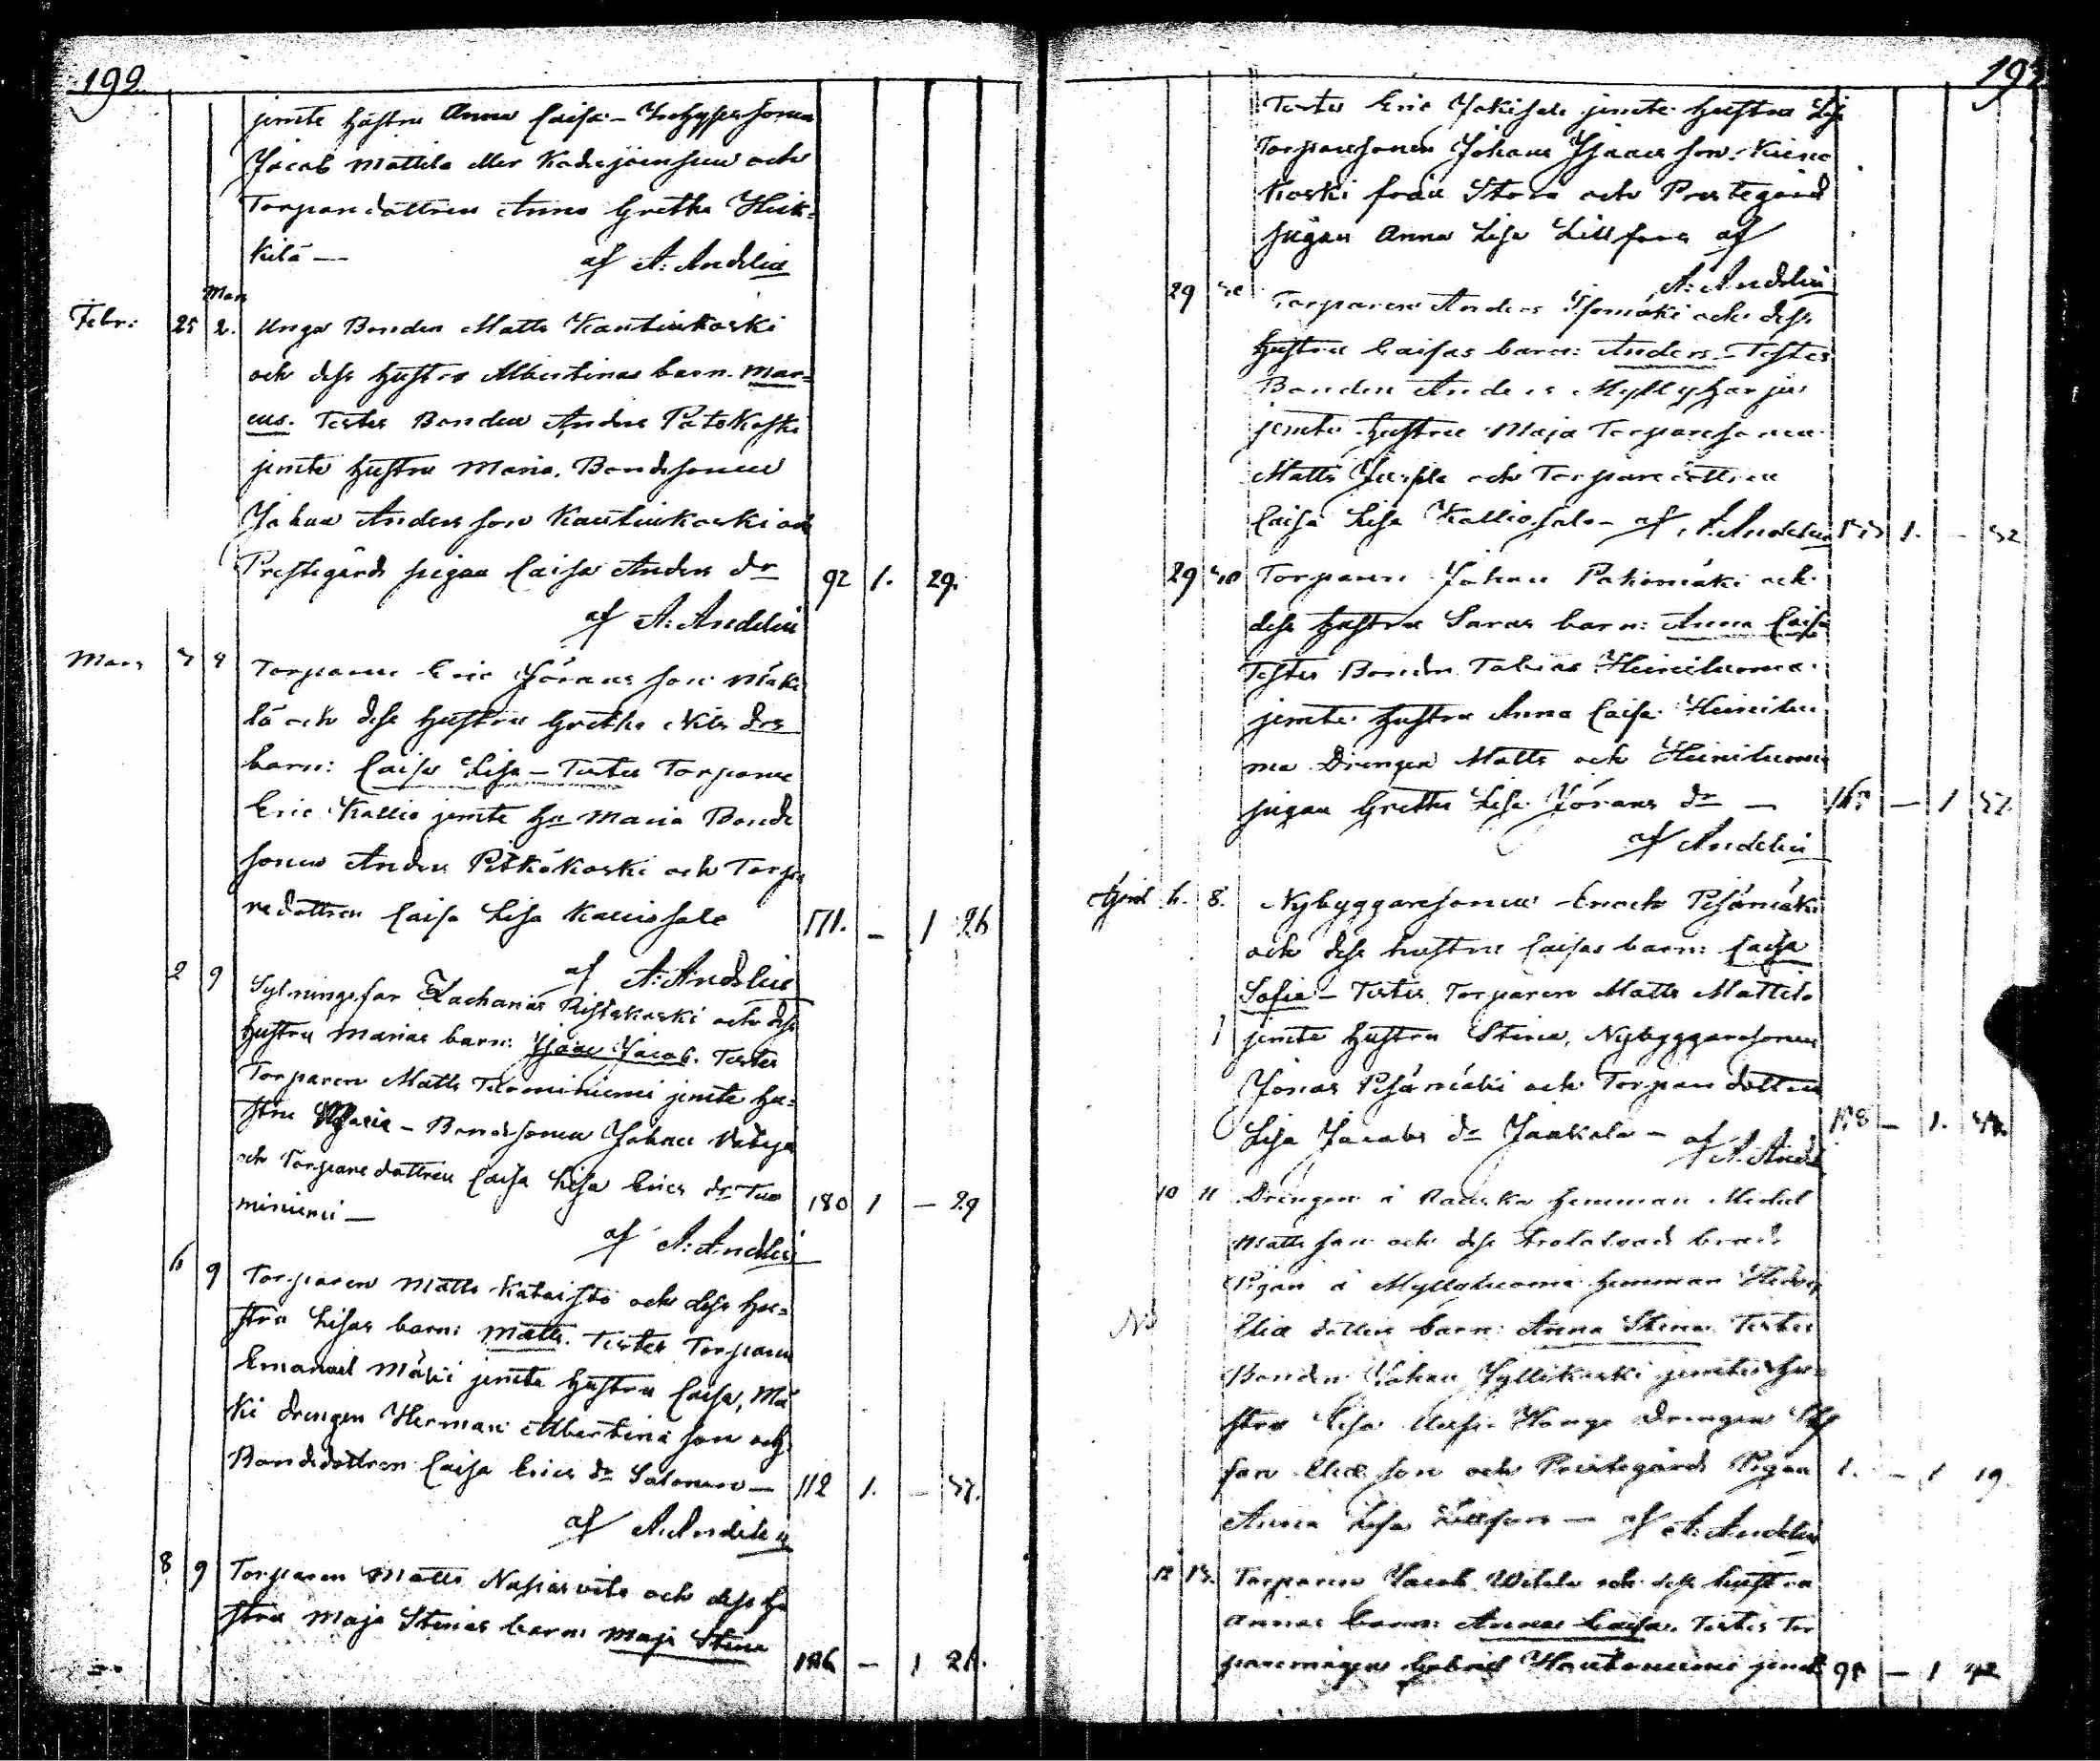 199.
jemte hustru Anna Caisa - Inhysessonen
Jacob Mattila eller Kadesjoensuu och
Torparedottren Anna Gretha Heik=
kilä — af A: Andelin
Febr: 25 Mars 2. Unga Bonden Matts Kautiukoski
och dess hustru Albertinas barn. Mar=
cus. Testes Bonden Anders Patokoski
jemte hustru Maria. Bondesonen
Johan Andersson Kautiukoski och
Prestegårds pigan Caisa Anders dr 92 1. 29.
af A: Andelin
Mars 8 Torparen Eric Jörans son Mäki
lä och dess hustru Gretha Nils drs
barn: Caisa Lisa - Testes Torparen
Eric Kallio jemte hu Maria Bonde
sonen Anders Pitkäkoski och Torpa
redottren Caisa Lisa Kalliosalo 171. — 1 26
af A: Andelin
2 9 Sytningsfar Zacharias Ristakoski och dess
hustru Marias barn: Isaac Jacob. Testes
Torparen Matts Tuominiemi jemte hu=
stru Maria - Bondesonen Johan
och Torparedottren Caisa Lisa Erics dr Tuo
miniemi — 180 1 — 29
af A: Andelin
6 9 Torparen Matts Kataisto och dess hu=
stru Lisas barn: Matts. Testes Torparen
Emanuel Mäki jemte hustru Caisa, Mä
ki drengen Herman Albertina son och
Bondedottren Caisa Erics dr Salonen — 112 1. — 37.
af A: Andelin
8 9 Torparen Matts och dess hu
stru Maja Stinas barn: Maja Stina
186 — 1 21.
197
Testes Eric Jokisalo jemte hustru Lisa
Torparesonen Johan Isaacs son
koski från Storå och Prestegårds
pigan Anna Lisa Lillfors af
A: Andelin
29 30 Torparen Anders Isomäki och dess
hustru Caisas barn: Anders - Testes
Bonden Anders Myllyharju
jemte hustru Maja Torparesonen
Matts och Torparedottren
Caisa Lisa Kalliosalo - af A. Andelin 1. — 32
29 30 Torparen Johan Pahamäki och
dess hustru Saras barn: Anna Caisa
Testes Bonden Tobias Heiniluoma
jemte hustru Anna Caisa Heiniluo
ma Drengen Matts och Heiniluoma
pigan Gretha Lisa Jörans dr — — 1 37.
af Andelin
April 6. 8. Nybyggaresonen Enoch Pesämäki
och dess hustru Caisas barn: Caisa
Sofia - Testes Torparen Matts Mattila
jemte hustru Stina, Nybyggaresonen
Jonas Pesämäki och Torparedottren
Lisa Jacobs dr Jaakola - af A. And 178 — 1.
10 11 Drengen å Rauska hemman Michel
Matts son och dess trolofvade brud
Pigan å Myllyluoma hemman Hedvig
Eliæ dotters barn: Anna Stina Testes
Bonden Johan Jyllikoski jemte hu=
stru Lisa drengen
Eliæ son och Prestegårds Pigan 1. — 1 19.
Anna Lisa Lillfors — af A: Andelin
12 13. Torparen Jacob och dess hustru
Annas barn: Anna Caisa. Testes Tor
paremågen Gabriel Hautaniemi jemte 95 — 1 42